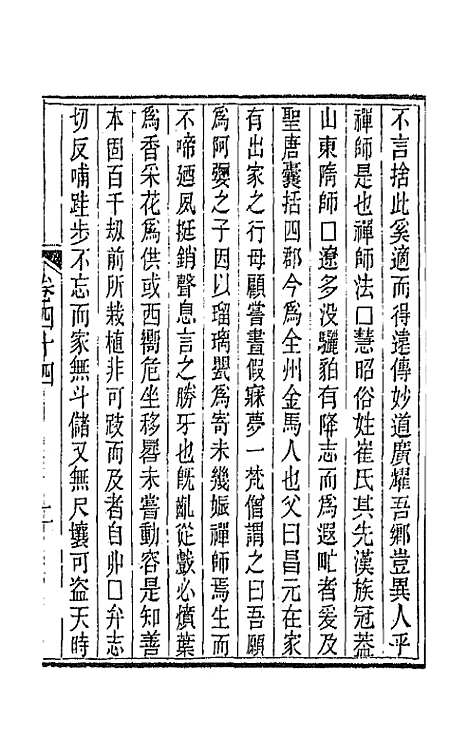 不言捨此奚適而得遠傳妙道廣耀吾鄉豈異人乎
禪師是也禪師法□慧昭俗姓崔氏其先漢族冠蓋
山東隋師□遼多没驪貊有降志而爲遐甿者爰及
聖唐囊括四郡今爲全州金馬人也父曰昌元在家
有出家之行母顧嘗晝假寐夢一梵僧謂之曰吾願
爲阿㜷之子因以瑠璃甖爲寄未幾娠禪師焉生而
不啼廼夙挺銷聲息言之勝牙也既齓從戲必燌葉
爲香采花爲供或西嚮危坐移晷未嘗動容是知善
本固百千刼前所栽植非可跂而及者自丱□弁志
切反哺跬步不忘而家無斗儲又無尺壤可盗天時
卷四十四